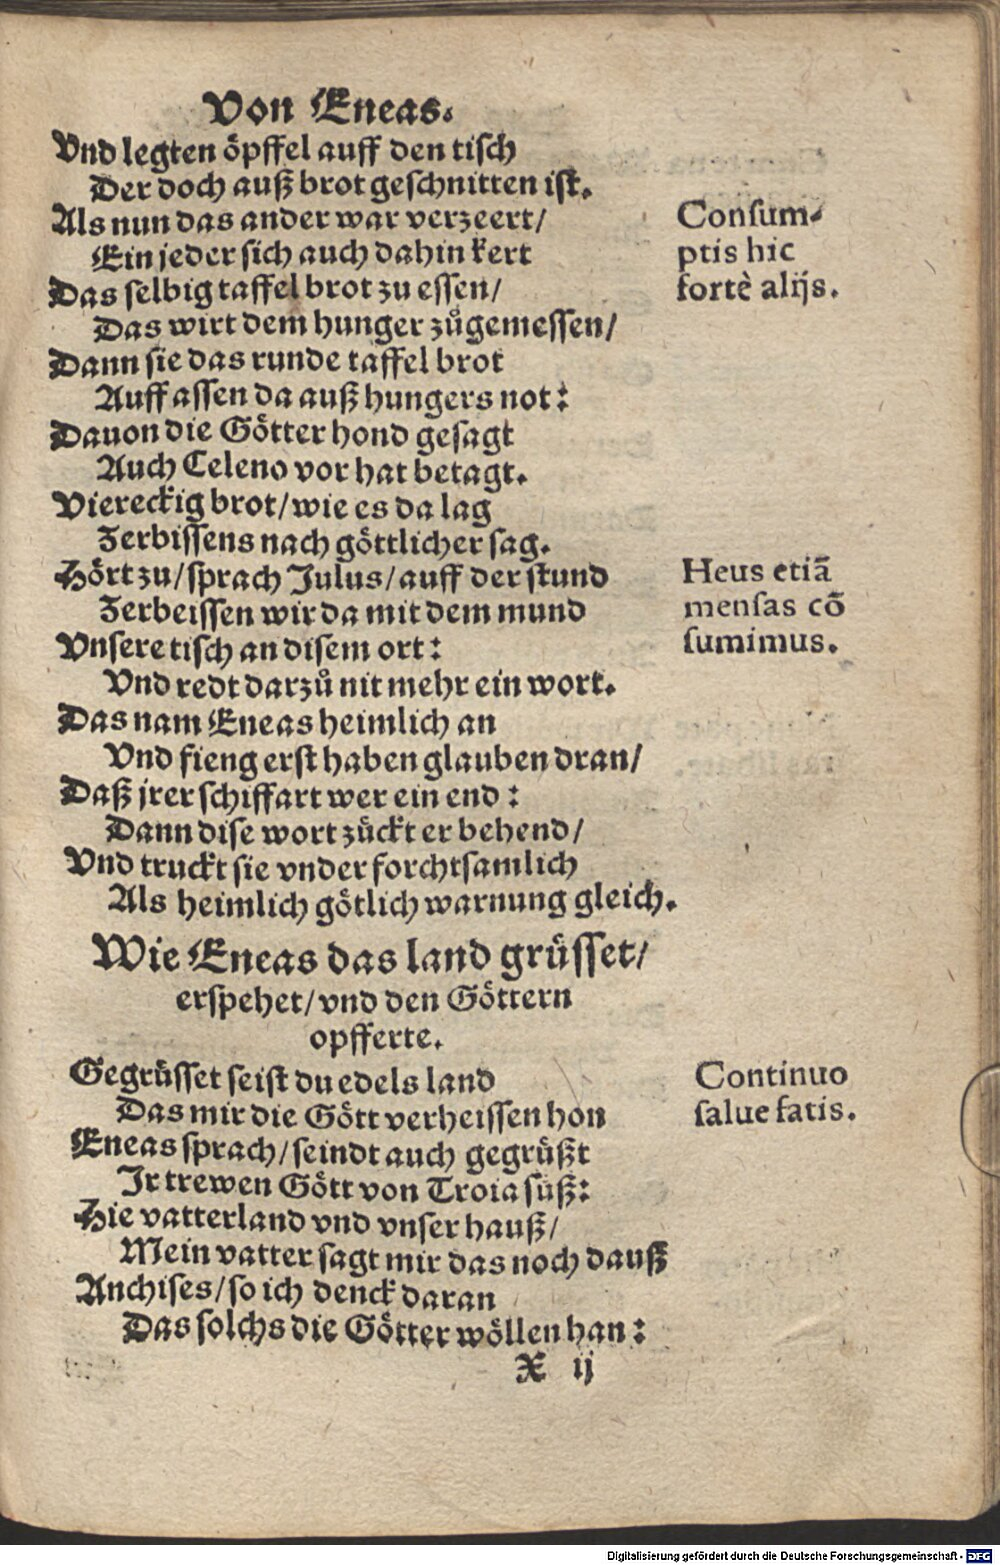 Von Eneas.
Vnd legten öpffel auff den tisch
Der doch auß brot geschnitten ist.
Als nun das ander war verzeert/
Ein jeder sich auch dahin kert
Das selbig taffel brot zu essen/
Das wirt dem hunger zůgemessen/
Dann sie das runde taffel brot
Auff assen da auß hungers not:
Dauon die Götter hond gesagt
Auch Celeno vor hat betagt.
Viereckig brot/wie es da lag
Zerbissens nach göttlicher sag.
Hört zu/sprach Julus/auff der stund
Zerbeissen wir da mit dem mund
Vnsere tisch an disem ort:
Vnd redt darzů nit mehr ein wort.
Das nam Eneas heimlich an
Vnd fieng erst haben glauben dran/
Daß jrer schiffart wer ein end:
Dann dise wort zückt er behend/
Vnd truckt sie vnder forchtsamlich
Als heimlich götlich warnung gleich.
Wie Eneas das land grüsset/
erspehet/vnd den Göttern
opfferte.
Gegrüsset seist du edels land
Das mir die Gött verheissen hon
Eneas sprach/seindt auch gegrüßt
Ir trewen Gött von Troia süß:
Hie vatterland vnd vnser hauß/
Mein vatter sagt mir das noch dauß
Anchises/so ich denck daran
Das solchs die Götter wöllen han:
X ij
Consum-
ptis hic
fortè alijs.
Heus etiã
mensas cõ
sumimus.
Continuo
salue fatis.
Digitalisierung gefördert durch die Deutsche Forschungsgemeinschaft - DFG